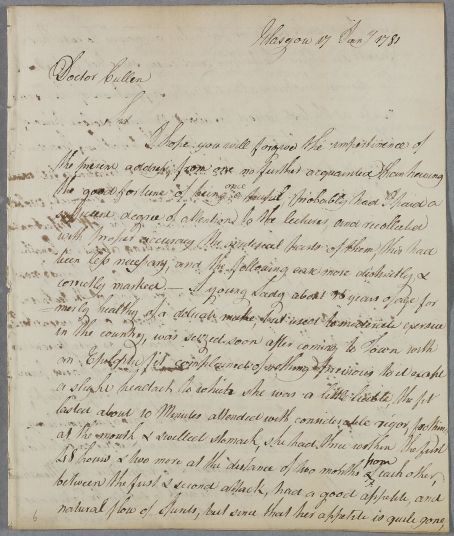 Glasgow 17 Jany 1781
Doctor Cullen
Sir
I hope you will forgive the impertinence of
the present address from one no further acquainted than having
the good fortune of being once a pupil, probably had I paid a
sufficient degree of attention to the lectures, and recollected
with proper accuracy the parts of them, this had
been less necessary, and the following case more distinctly &
correctly marked — A young Lady about 16 years of age for
merly healthy of a delicate make, but used to moderate exercise
in the country, was seized soon after coming to Town with
an Epileptic fit, complained of nothing previous to it except
a slight headach to which she was a little liable, the fit
lasted about 10 Minutes attended with considerable rigor, foaming
at the mouth & swelled stomach, she had three within the first
48 hours, & two more at the distance of two months from each other,
between the first & second attack, had a good appetite, and
natural flow of spirits, but since that her appetite is quite gone,
6